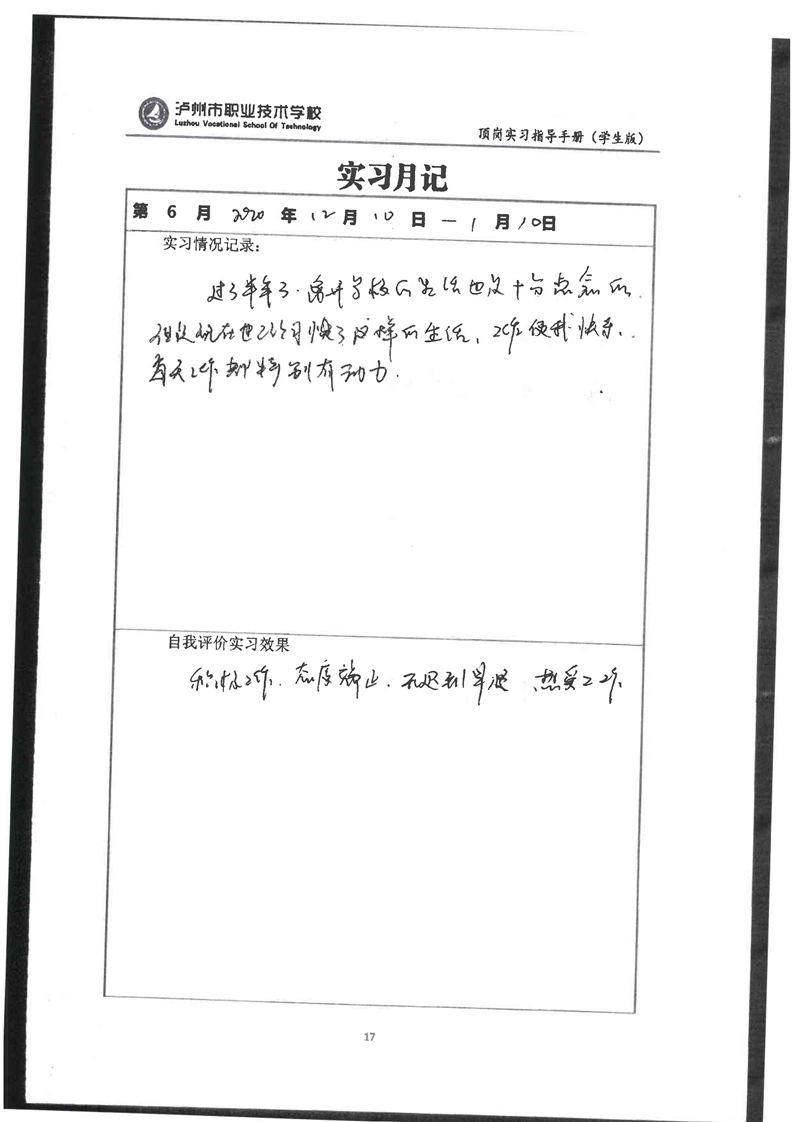 泸州市职业技术学校
Luzhou Vocational School Of Technology
顶岗实习指导手册（学生版）
实习月记
第 6 月 2020 年 12 月 10 日 — 1 月 10日
实习情况记录：
过了半年了.离开学校的生活也是十分想念的.
但是现在也已经习惯了这样的生活，工作使我快乐，.
每天工作都特别有动力.
自我评价实习效果
积极工作、态度端正、无迟到早退、热爱工作
17